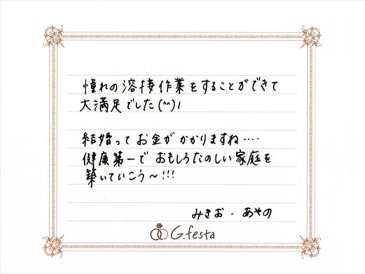 憧れの溶接作業をすることができて
大満足でした(^^)!
結婚ってお金がかかりますね‥‥
健康第一でおもしろたのしい家庭を
築いていこう～!!!
みきお・あその
G.festa